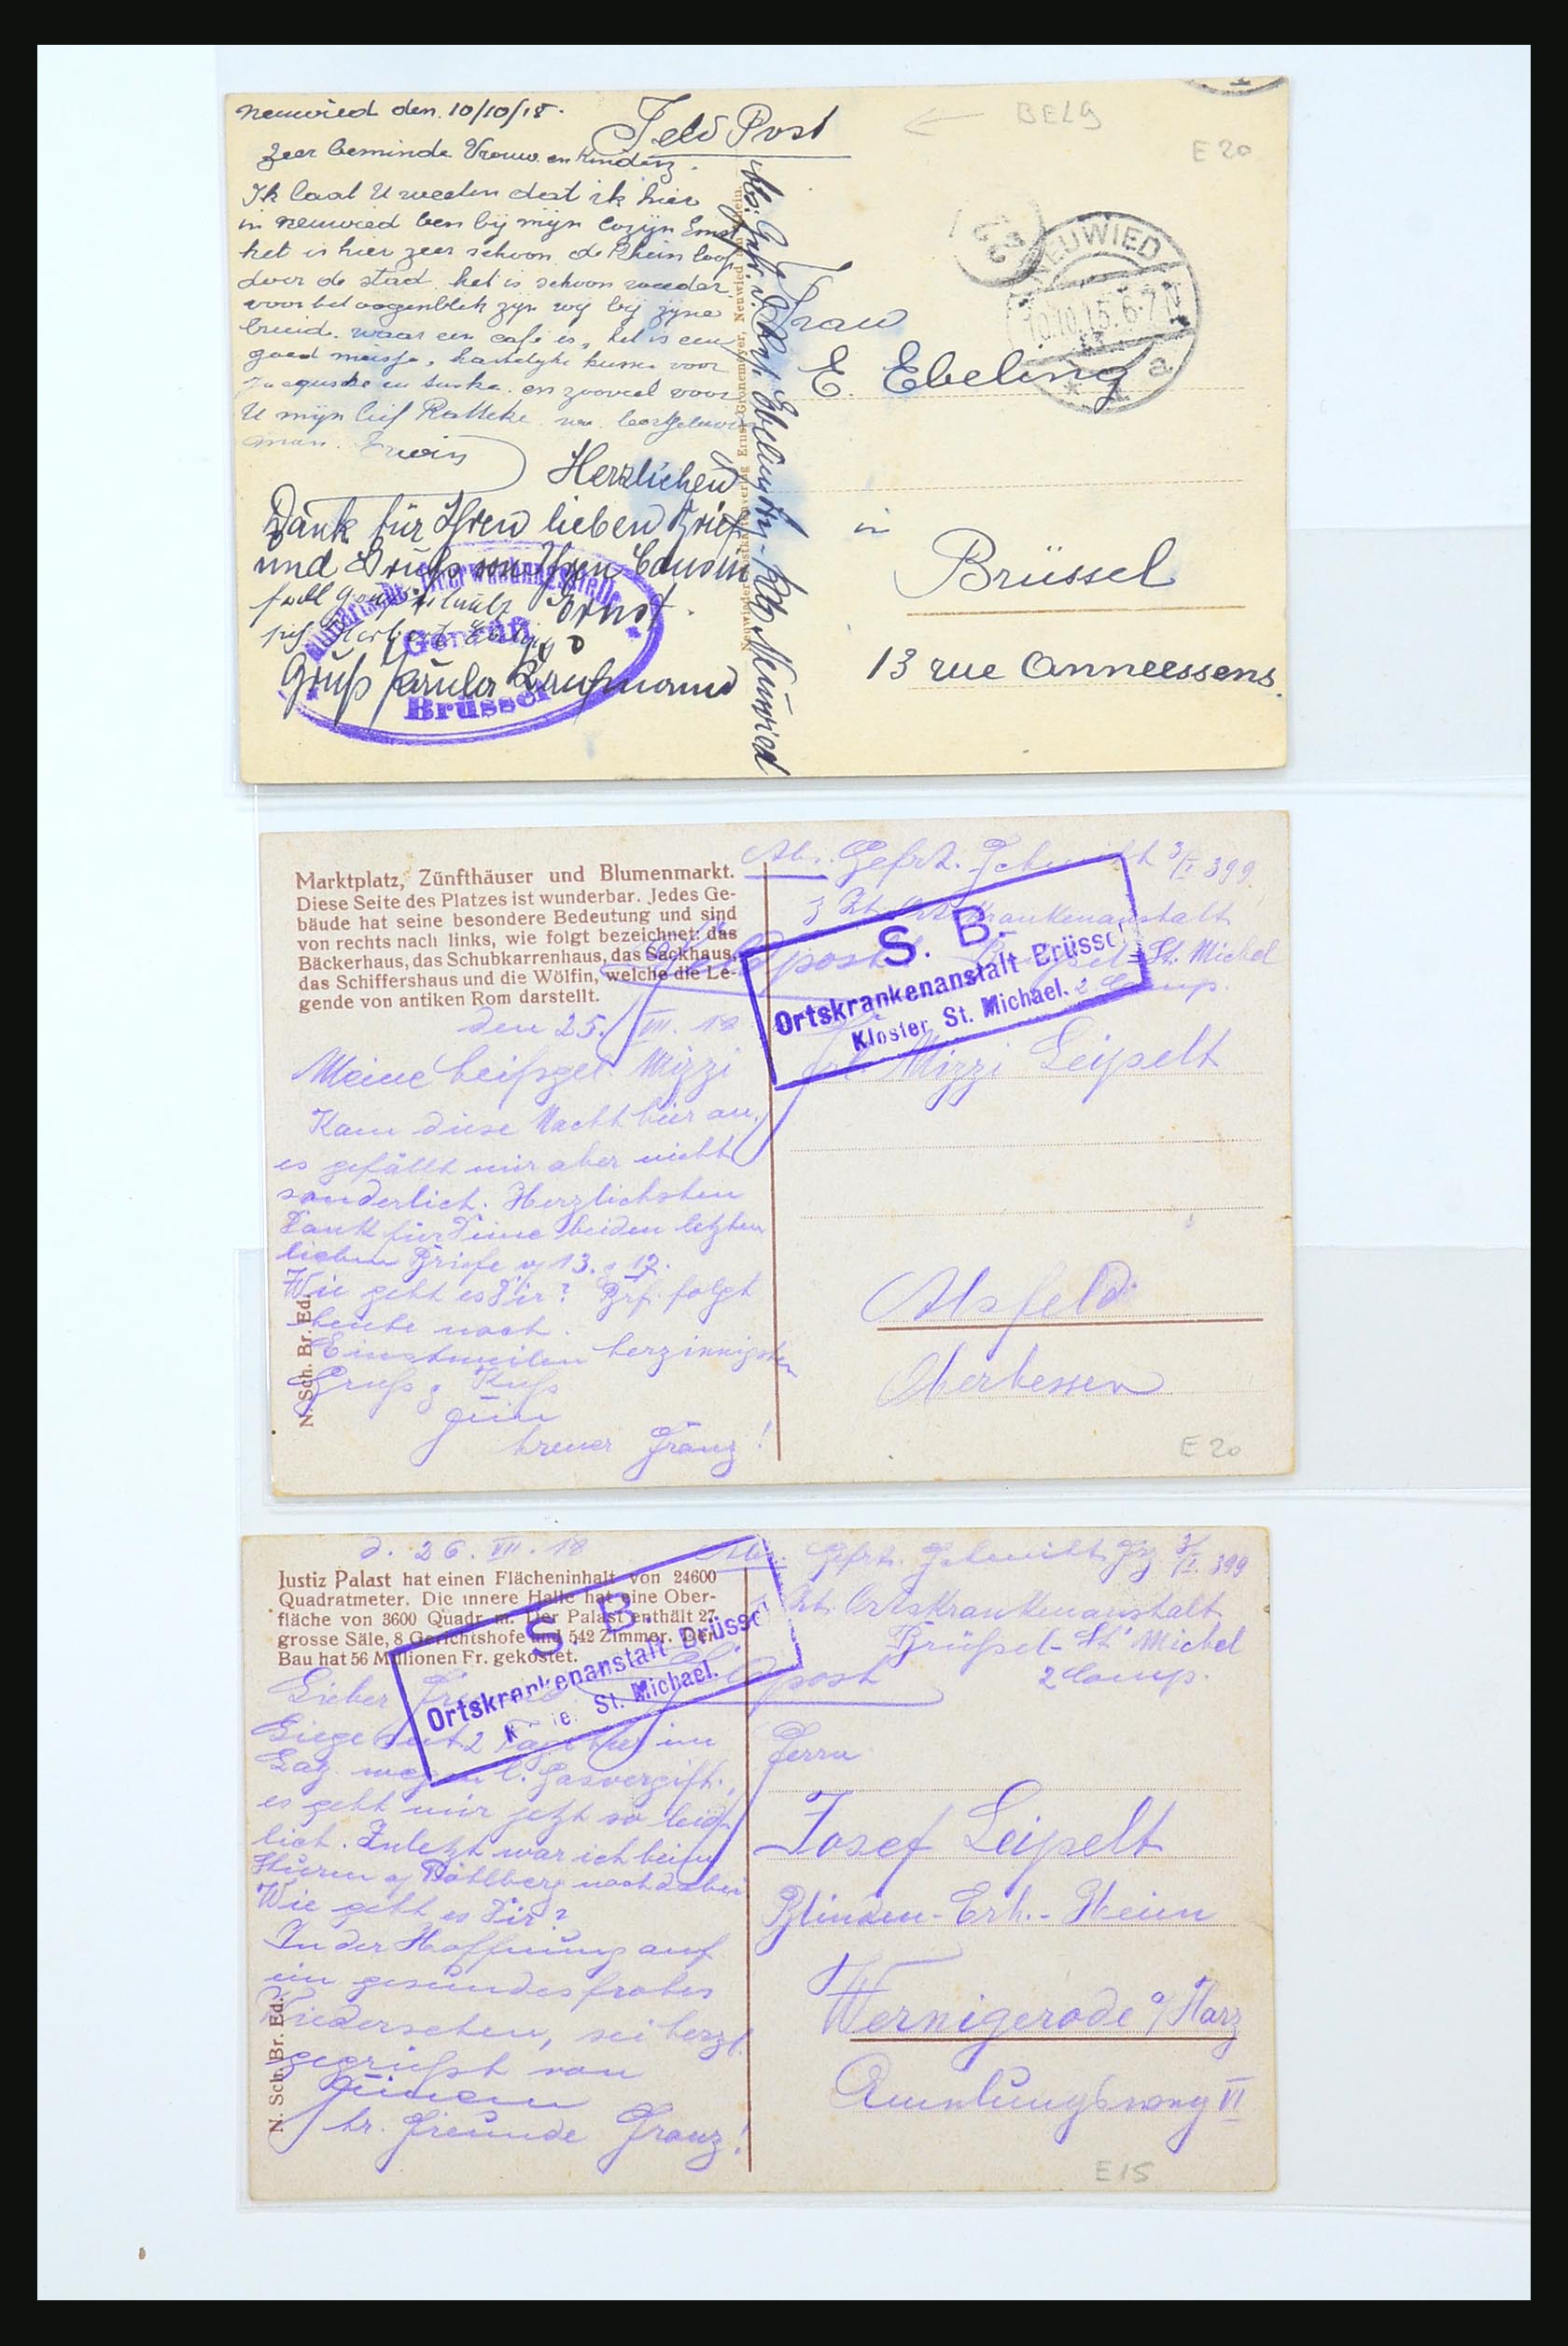 neuwied den 10/10/18.
Feld Post
BELG
E 20
Zeer beminde Vrouw en Kinders.
Ik laat U weeten dat ik hier
in neuwied ben bij mijn cozijn Ernst
het is hier zeer schoon de Rhein loop
door de stad. het is schoon weeder
voor het oogenblik zijn wij bij zijne
bruid. waar een cafe is, het is een
goed meisje, hartelijke kussen voor
en zooveel voor
U mijn lief
man. Erwin
Herzlichen
Dank für Ihren lieben Brief
und Gruß von Ihren Cousin
Ernst.
Gruß Paula Kaufmann
Militärische Überwachungsstelle
Geprüft
Brüssel
Neuwieder Postkartenverlag Ernst Gronemeyer, Neuwied am Rhein.
Ebeling Neuwied
NEUWIED
10.10.15.6-7N
* a
Frau
E. Ebeling
in
Brüssel
13 rue Anneessens.
Marktplatz, Zünfthäuser und Blumenmarkt.
Diese Seite des Platzes ist wunderbar. Jedes Ge-
bäude hat seine besondere Bedeutung und sind
von rechts nach links, wie folgt bezeichnet: das
Bäckerhaus, das Schubkarrenhaus, das Sackhaus,
das Schiffershaus und die Wölfin, welche die Le-
gende von antiken Rom darstellt.
Abs. Gefrt. Schmidt 3/I. 399
z. Zt. Ortskrankenanstalt
Brüssel-St. Michel
2. Comp.
Feldpost
S. B.
Ortskrankenanstalt Brüssel
Kloster St. Michael.
den 25. VII. 18
Meine heißgel. Mizzi
Kam diese Nacht hier an,
es gefällt mir aber nicht
sonderlich. Herzlichsten
Dank für Deine beiden letzten
lieben Briefe v. 13. u. 17.
Wie geht es Dir? Brf. folgt
heute noch.
Einstweilen herzinnigsten
Gruß u. Kuß
Dein
treuer Franz!
N. Sch. Br. Ed.
Frl. Mizzi Leipelt
Alsfeld
Oberhessen
E 20
d. 26. VII. 18
Justiz Palast hat einen Flächeninhalt von 24600
Quadratmeter. Die innere Halle hat eine Ober-
fläche von 3600 Quadr. m. Der Palast enthält 27
grosse Säle, 8 Gerichtshofe und 542 Zimmer. Der
Bau hat 56 Millionen Fr. gekostet.
Abs. Gefrt. Schmidt, Frz 3/I. 399
z. Zt. Ortskrankenanstalt
Brüßel-St. Michel
2 Comp.
Feldpost
S. B.
Ortskrankenanstalt Brüssel
Kloster St. Michael.
Lieber
Liege seit 2 Tage hier im
Laz. wegen l. Gasvergift.,
es geht mir jetzt so leid-
lich. Zuletzt war ich beim
Sturm a/ Pöhlberg noch dabei
Wie geht es Dir?
In der Hoffnung auf
ein gesundes frohes
Wiedersehen, sei herzl.
gegrüßt von
Deinem
tr. Freunde Franz!
N. Sch. Br. Ed.
Herrn
Josef Leipelt
Blinden-Erh.-Heim
Wernigerode a/Harz
Amelungsweg VI
E 15